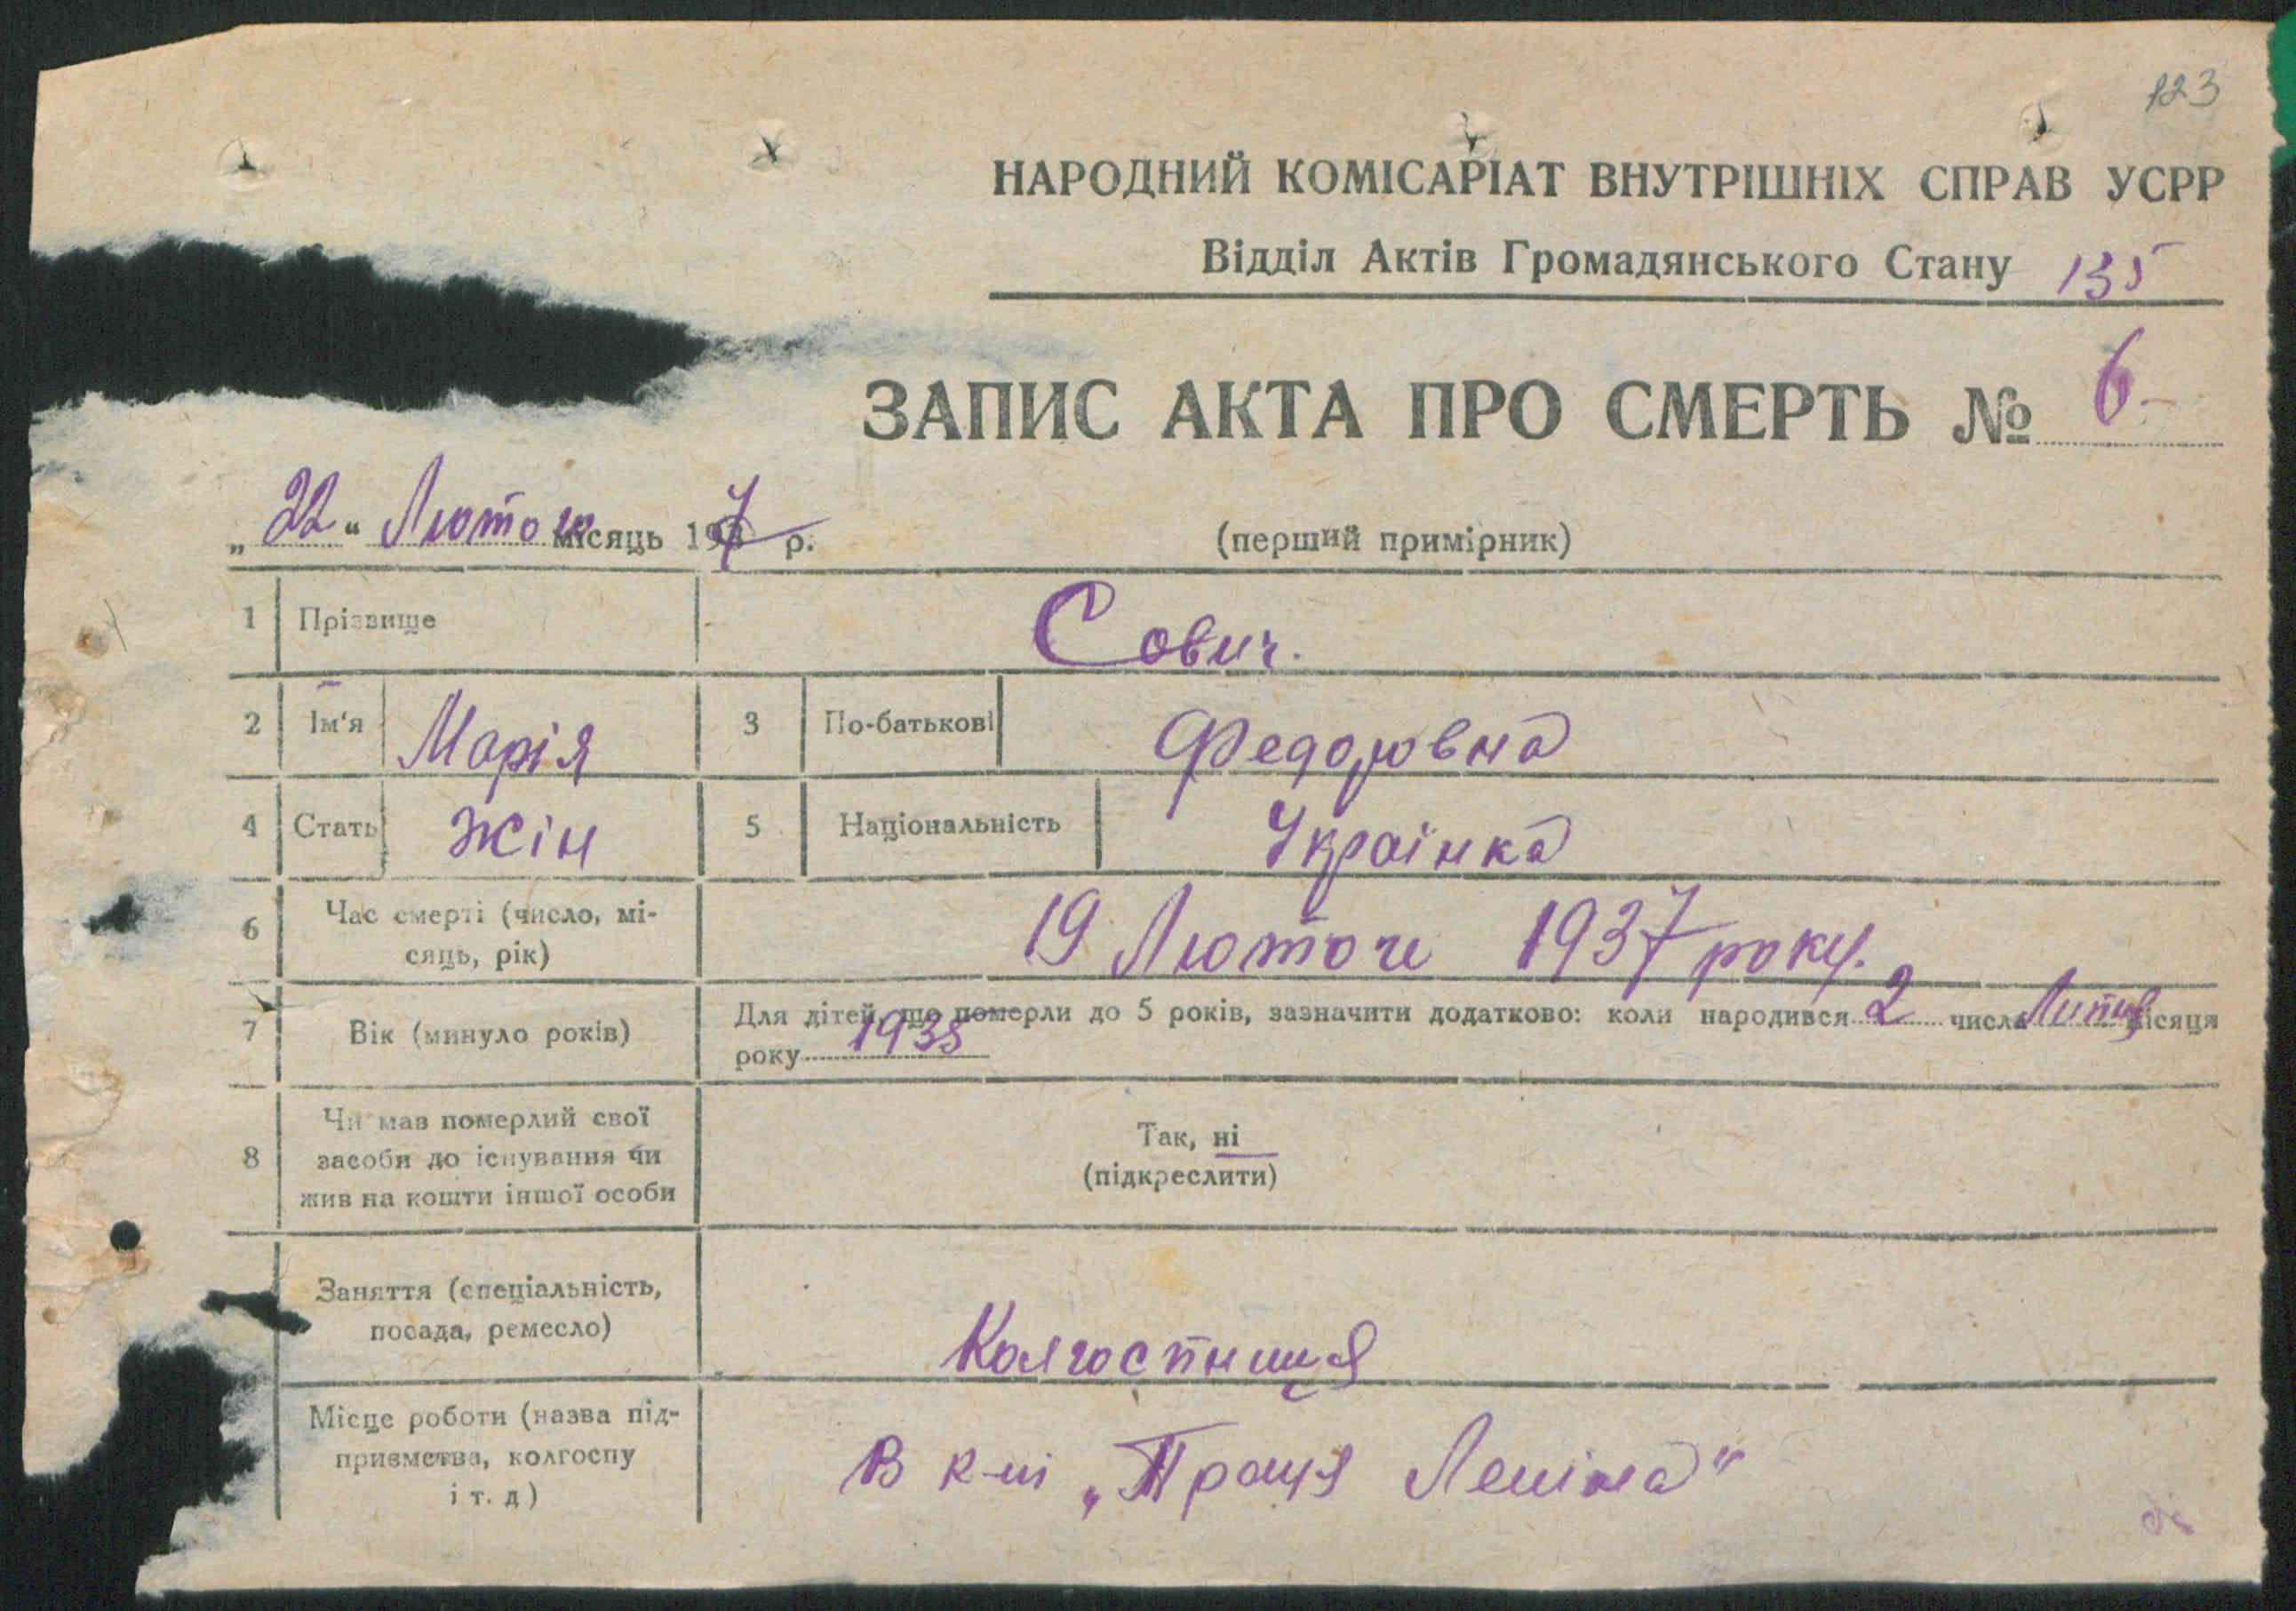 123
НАРОДНИЙ КОМІСАРІАТ ВНУТРІШНІХ СПРАВ УСРР
Відділ Актів Громадянського Стану 135
ЗАПИС АКТА ПРО СМЕРТЬ № 6
„22“ Лютого місяць 1937 р. (перший примірник)
1 Прізвище Сович.
2 Ім'я Марія 3 По-батькові Федоровна
4 Стать Жін 5 Національність Українка
6 Час смерті (число, мі-
сяць, рік) 19 Лютого 1937 року.
7 Вік (минуло років) Для дітей, що померли до 5 років, зазначити додатково: коли народився 2 числа місяця
року 1935
8 Чи мав померлий свої
засоби до існування чи
жив на кошти іншої особи
Так, ні
(підкреслити)
Заняття (спеціальність,
посада, ремесло) Колгоспниця
Місце роботи (назва під-
приємства, колгоспу
і т. д) В к-пі „Праця Леніна“